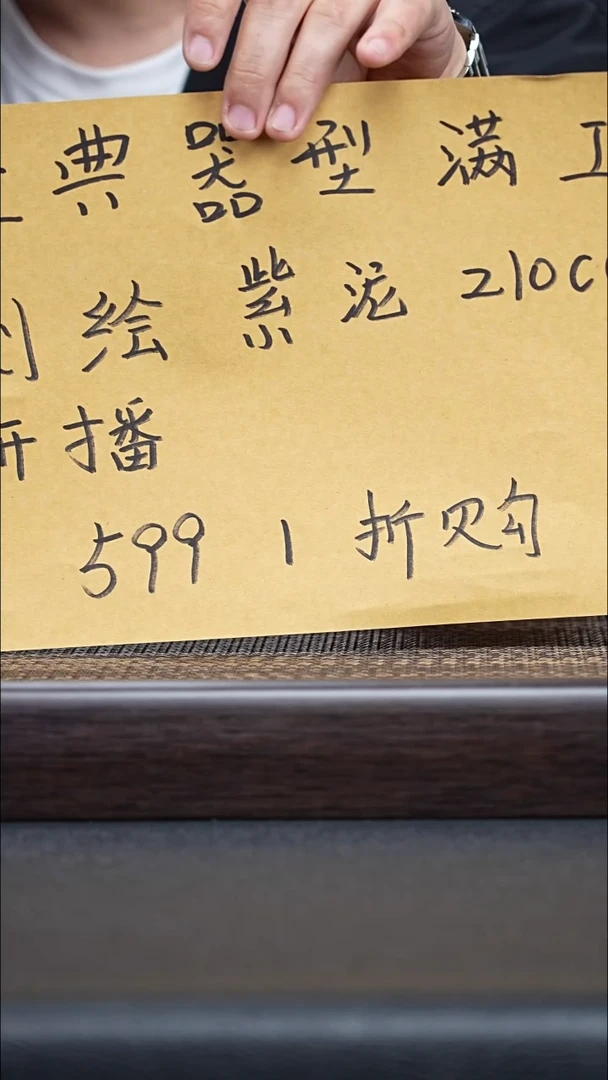 典器型满工
绘紫泥210c
播
599 1折购